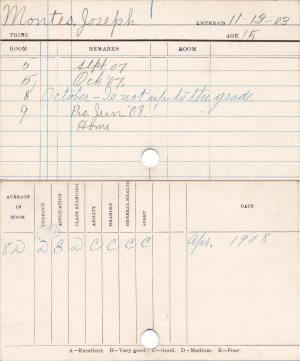 Montes, Joseph ENTERED 11-12-03
TRIBE AGE 15
ROOM REMARKS ROOM
5 Sept 07
5 Oct '07.
8 October - Is not up to the grade
9 Pro. Jun. '08.
Home
AVERAGE IN ROOM CONDUCT APPLICATION CLASS STANDING ABILITY HEARING GENERAL HEALTH SIGHT DATE
8D D E D C C C C Apr. 1908
A—Excellent. B—Very good. C—Good. D—Medium. E—Poor.